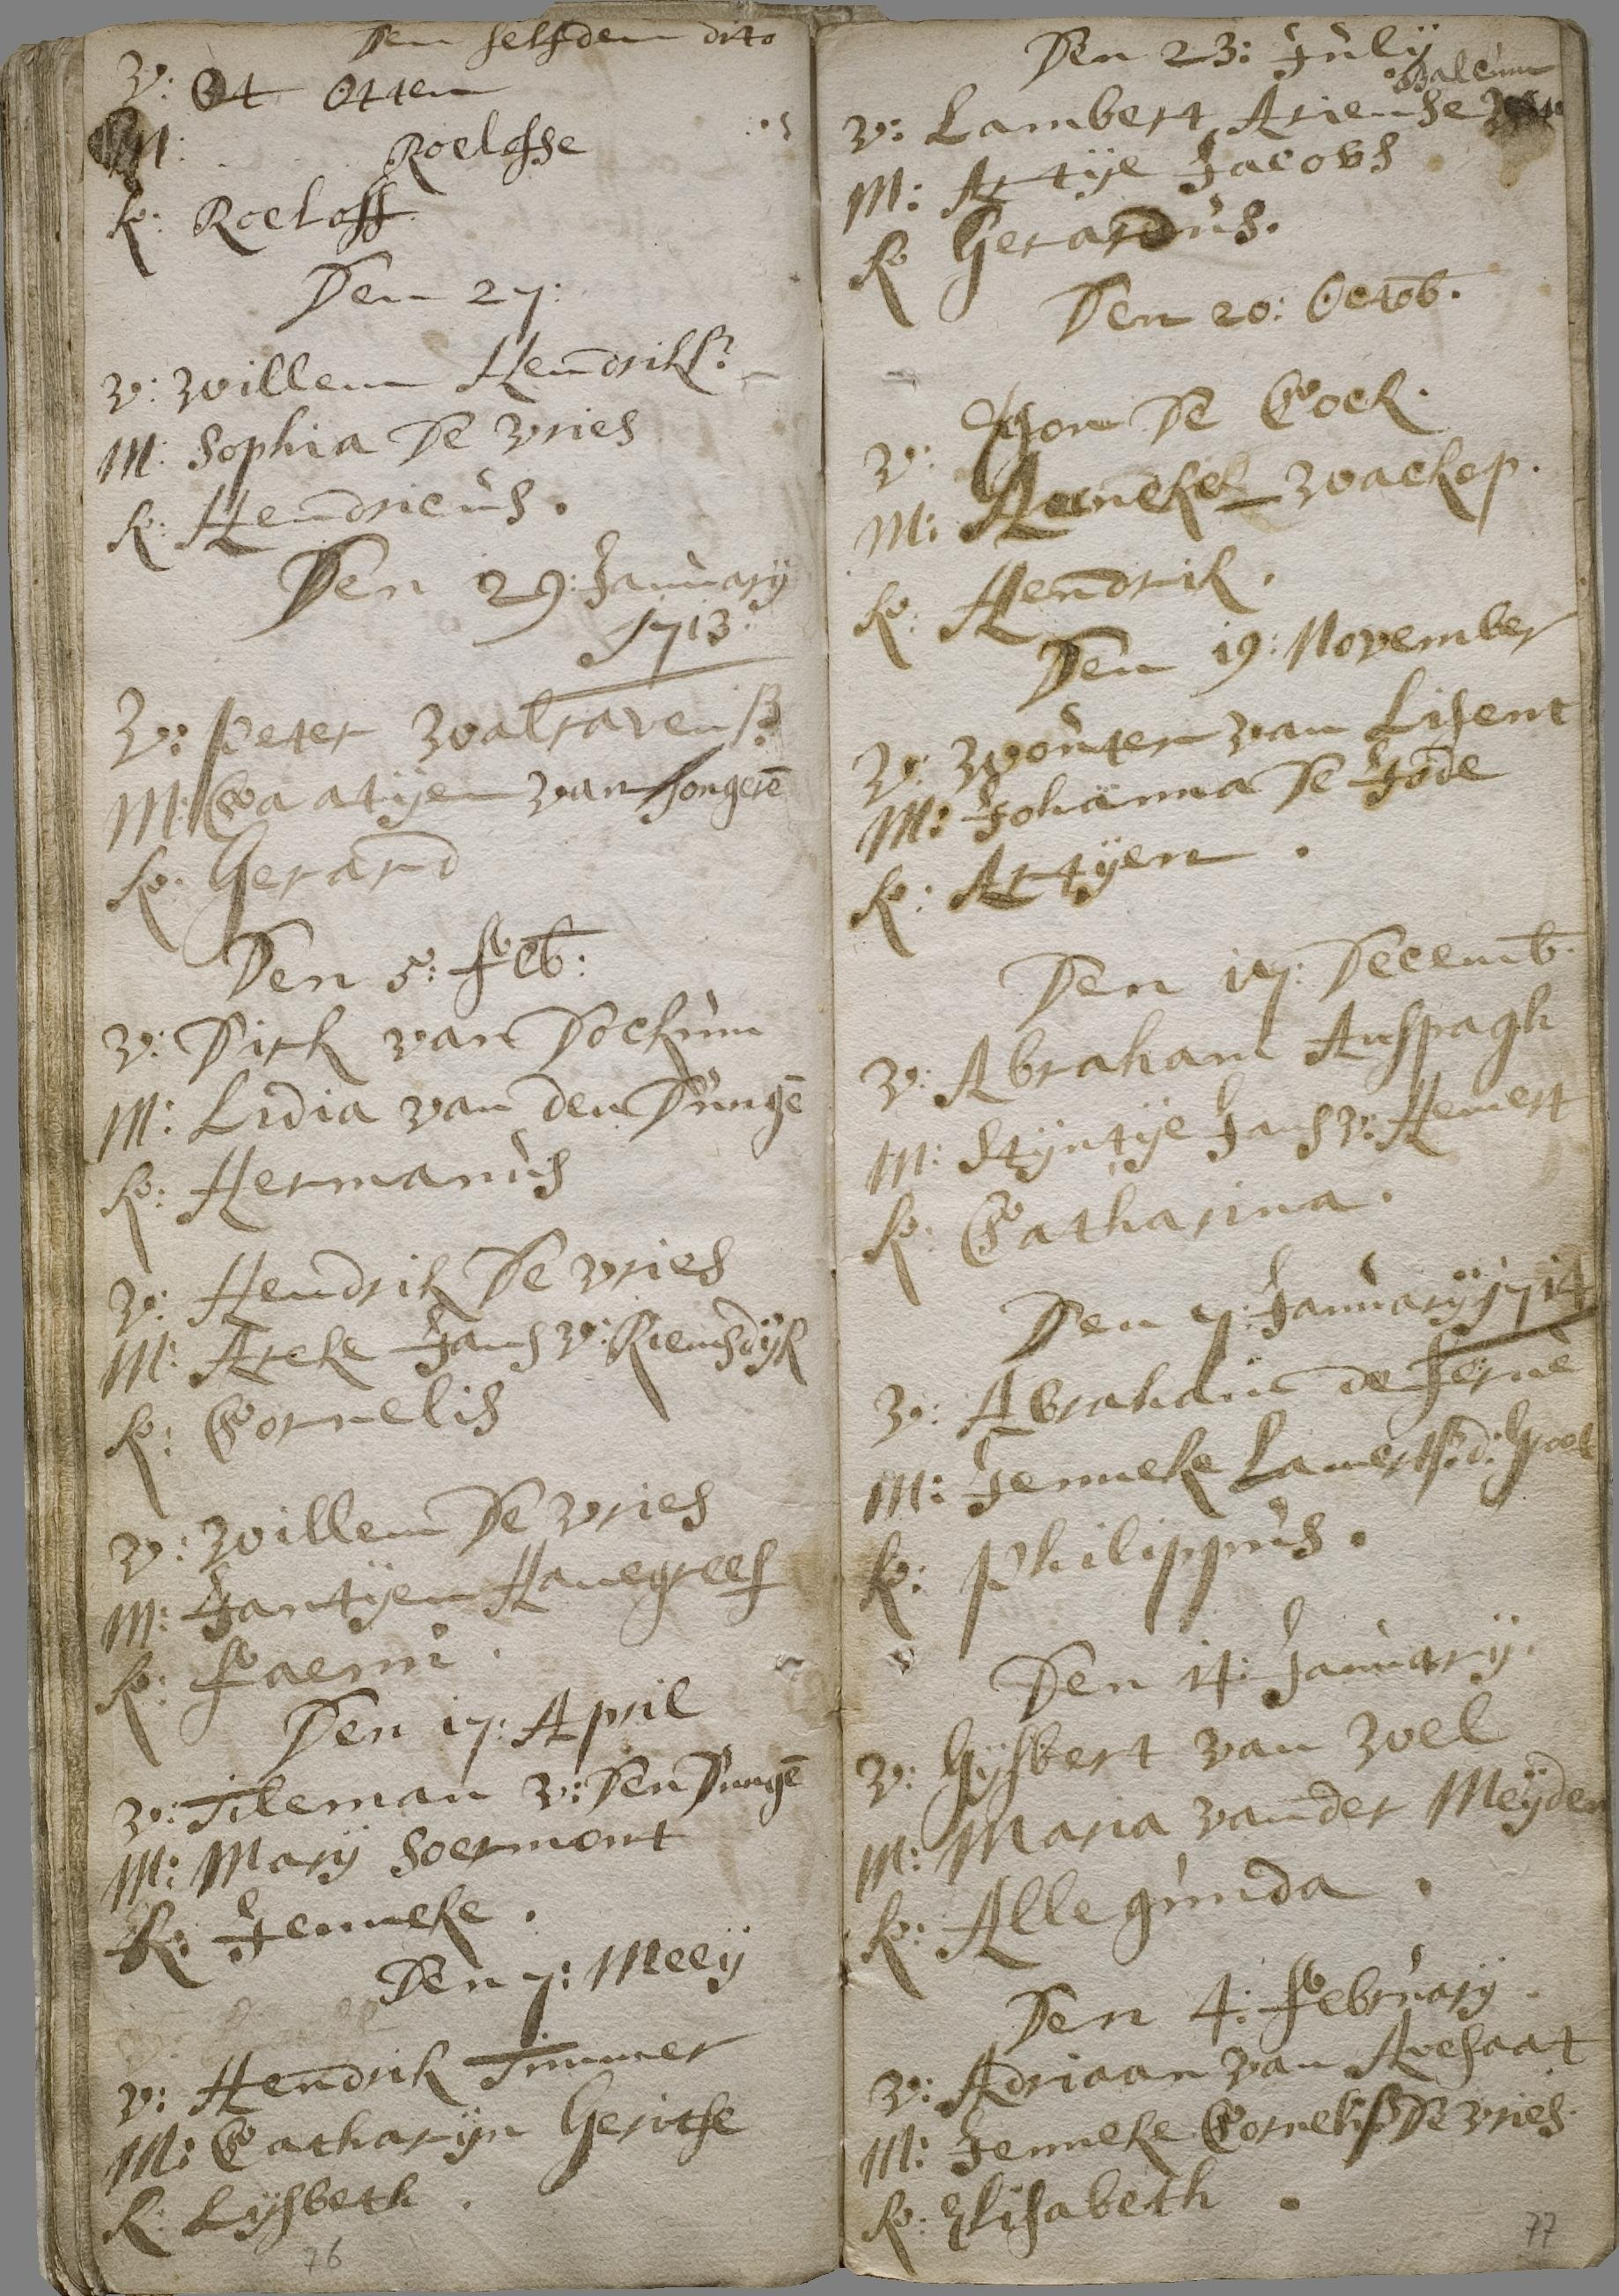 Den selfden dito
V: Ot Otten
M: Roelofse
K: Roeloff
Den 27:
V: Willem Hendriks:
M: Sophia De Vries
K: Hendricus.
Den 29: January
1713.
V: Peter Walravens:
M: Caatijen van Hongerē
K: Gerard
Den 5: Feb:
V: Dirk van Dockum
M: Lidia van den Dungē
K: Hermanus
V: Hendrik De Vries
M: Aeke Jans V: Riemsdijk
K: Cornelis
V: Willem De Vries
M: Jantijen Hanegreef
K:
Den 17: April
V: Tileman V: Den Dungē
M: Marij Soermont
K: Jenneke.
Den 7: Meeij
V: Hendrik Timmer
M: Catharijn Geritse
K: Lijsbeth.
76
Den 23: Julij
Balcum
V: Lambert Ariense
M: Artije Jacobs
K Gerardus.
Den 20: Octob.
V: Jon De Cock.
M: Wackop.
K: Hendrik.
Den 19: November
V: Wouter van Lisent
M: Johanna De Jode
K: Artijen.
Den 17: Decemb.
V: Abraham Anspagh
M: Stijntije Jans V: Hemert
K: Catharina.
Den 7: January 1714
V: Abraham de
M: Jenneke
K: Philippus.
Den 14: January.
V: Gijsbert van Wel
M: Maria vander Meijden
K: Allegunda.
Den 4: February.
V: Adriaan van Avesaat
M: Jenneke Cornelis De Vries.
K: Elisabeth.
77